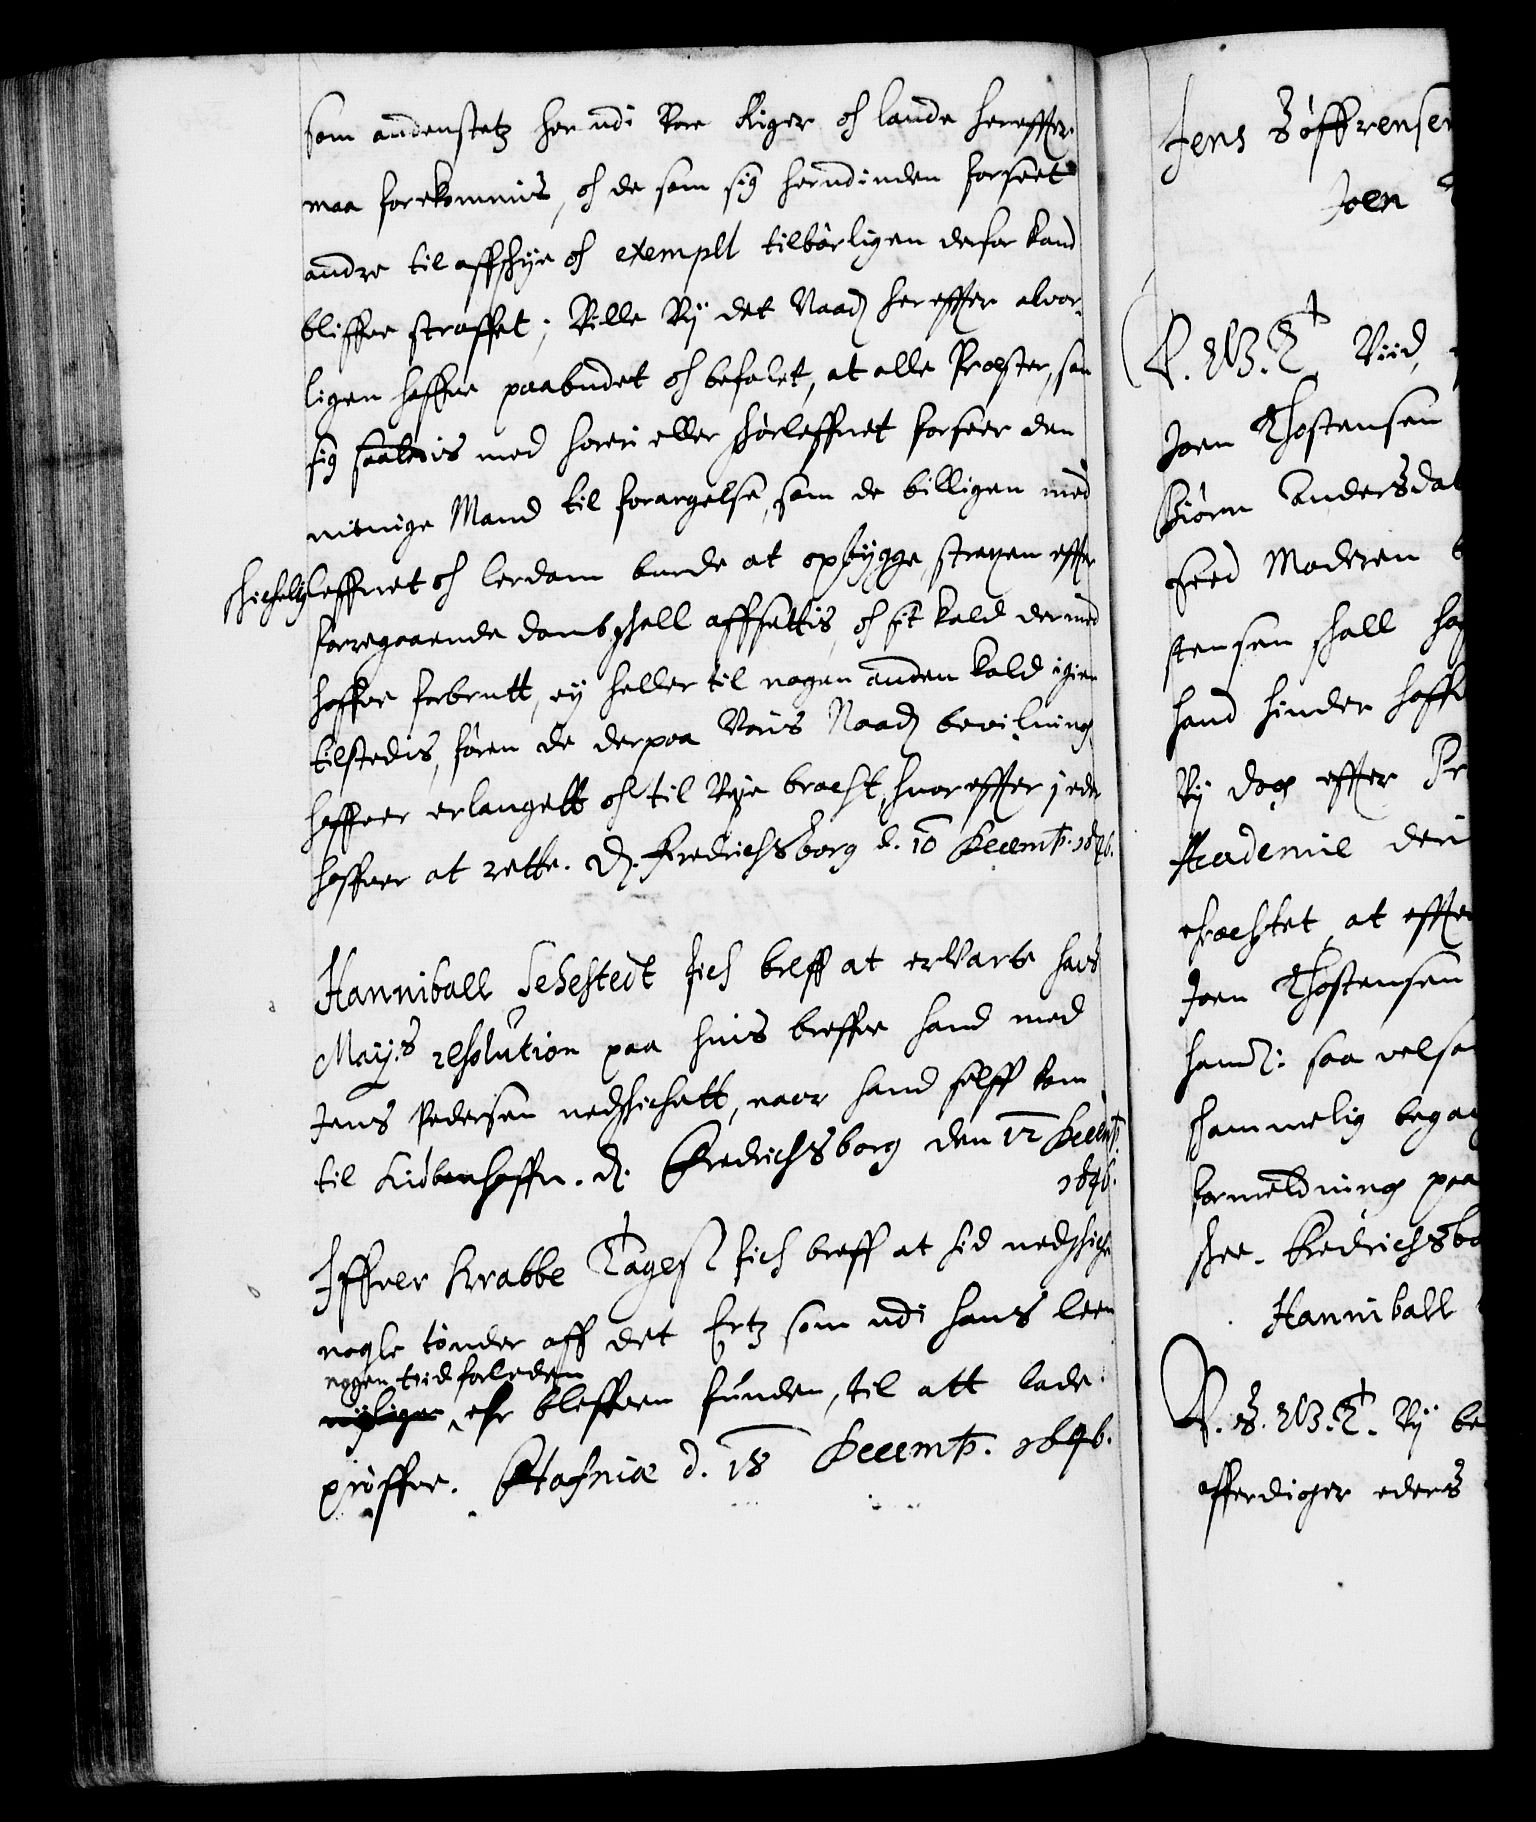 som andenstetz her udi Vore Riger och lande hereffter
maa forekommis, och de som sig herudinden forseet
andre til affskye och exempel tilbørligen derfor kand
bliffve straffet; Ville Vij det Naadh hereffter alvor-
ligen haffve paabudet och befalet, at alle Præster, som
sig saaledis med horeri eller skørleffnet forseer den
menige Mand til forargelse, som de billigen med
skickelig leffnet och lerdom burde at opbygge, straxen effter
forregaaende domb skall affsettis, och sit kald dermed
haffve forbrutt, ey heller til nogen anden kald igien
tilstedis, føren de derpaa Voris Naadh bevilning
haffver erlangett och til Veye bracht, huoreffter j eder
haffver at rette. Dt. Fredrichsborg d. 10 Decemb. 1646.
Hanniball Sehestedt fich breff at erVarte hans
May:s resolution paa huis breffve hand med
Jens Pedersen nedskichett, naar hand selff kom
til Kiøbenhaffn. Dt. Fredrichsborg den 12 Decemb.
1646.
Iffver Krabbe Tagesøn fich breff at hid nedskiche
nogle tønder aff det Ertz som udi hans leen
nogen tiid forleden
nyligen er bleffven funden, til att lade
prøffve. Hafniæ d. 18 Decemb. 1646.
Jens Søffrensen
Joen
V. G. T. Viid,
Joen Thostensen
Biørn Andersdat
sted Moderen
stensen skall haf
hand hinder haffu
Vij dog effter Pr
Academie deri
erachtet at effter
Joen Thostensen
hand: saa velsom
skammelig begaa
formeldning paa
skee. Fredrichsbo
Hanniball
V. G. T. Vij be
efferdiger eders